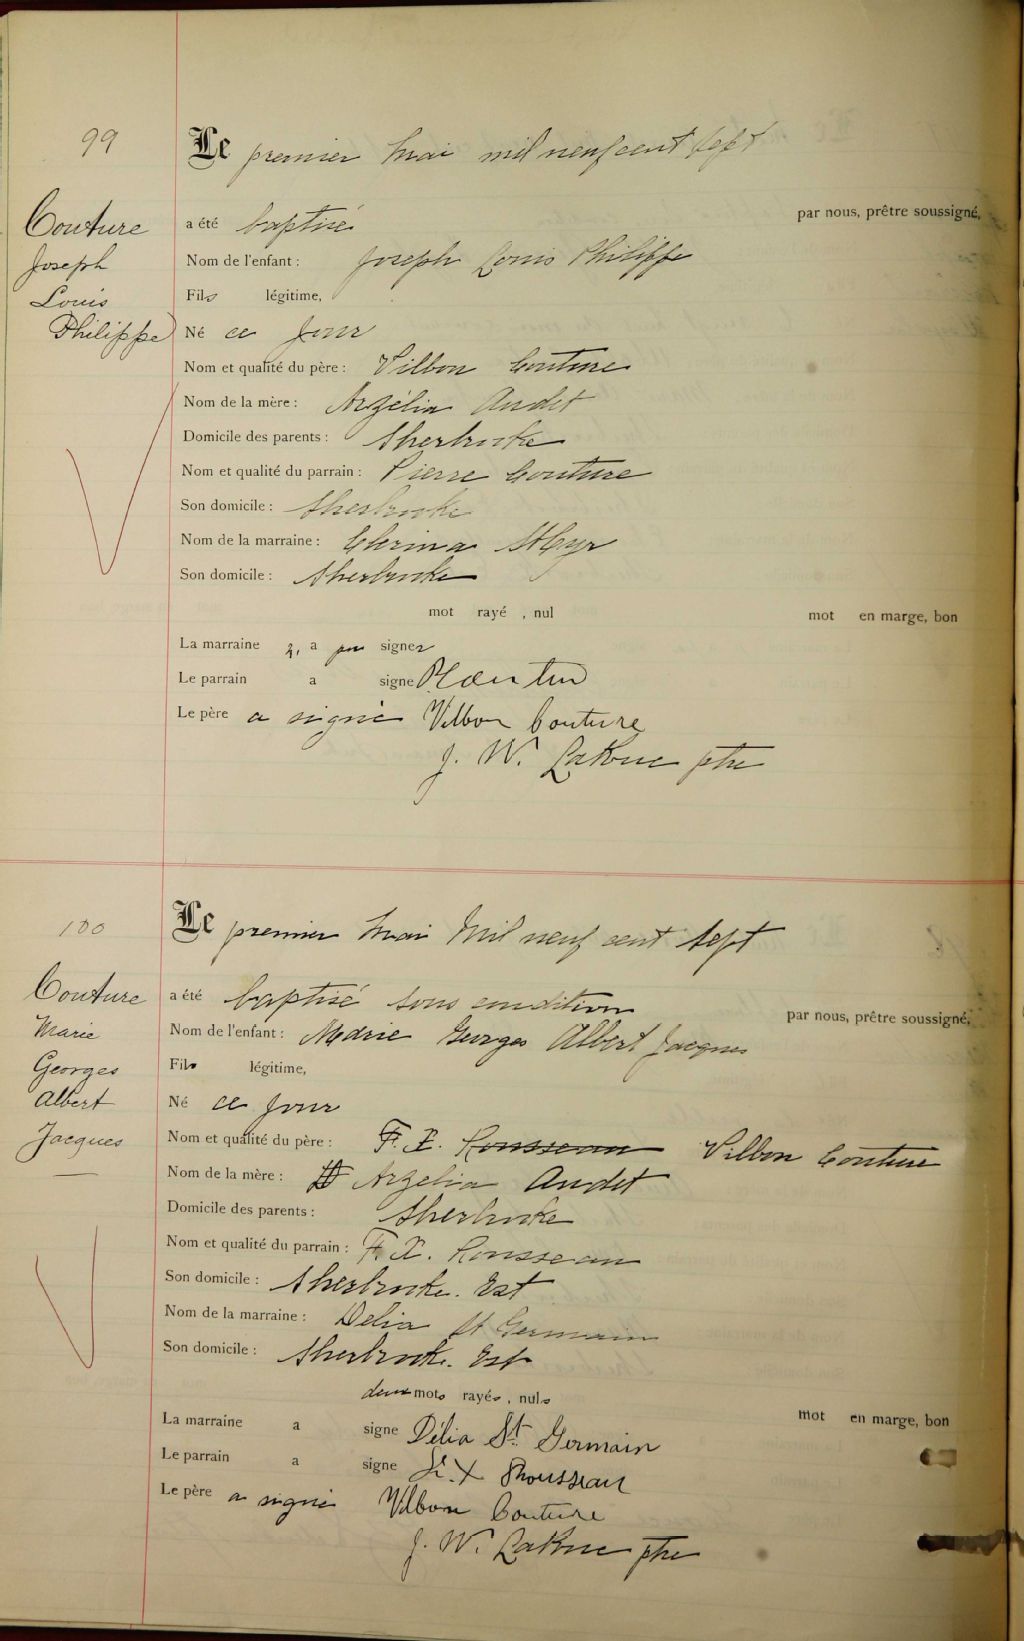 99
Le premier mai mil neuf cent sept
Couture
a été baptisé
par nous, prêtre soussigné,
Joseph
Nom de l'enfant : Joseph Louis Philippe
Louis
Fils légitime,
Philippe
Né ce jour
Nom et qualité du père : Vilbon Couture
Nom de la mère : Arzélia Audet
Domicile des parents : Sherbrooke
Nom et qualité du parrain : Pierre Couture
Son domicile : Sherbrooke
Nom de la marraine : St Cyr
Son domicile : Sherbrooke
mot rayé , nul
mot en marge, bon
La marraine n'a pu signer
Le parrain a signé
Le père a signé Vilbon Couture
J. W. ptre
100
Le premier mai mil neuf cent sept
Couture
a été baptisé sous condition
par nous, prêtre soussigné,
Marie
Nom de l'enfant : Marie Georges Albert Jacques
Georges
Fils légitime,
Albert
Né ce jour
Jacques
Nom et qualité du père : F. X. Rousseau Vilbon Couture
Nom de la mère : Arzelia Audet
Domicile des parents : Sherbrooke
Nom et qualité du parrain : F. X. Rousseau
Son domicile : Sherbrooke. Est
Nom de la marraine : Delia St Germain
Son domicile : Sherbrooke. Est
deux mots rayés, nuls
mot en marge, bon
La marraine a signé Délia St. Germain
Le parrain a signé F. X Rousseau
Le père a signé Vilbon Couture
J. W. ptre